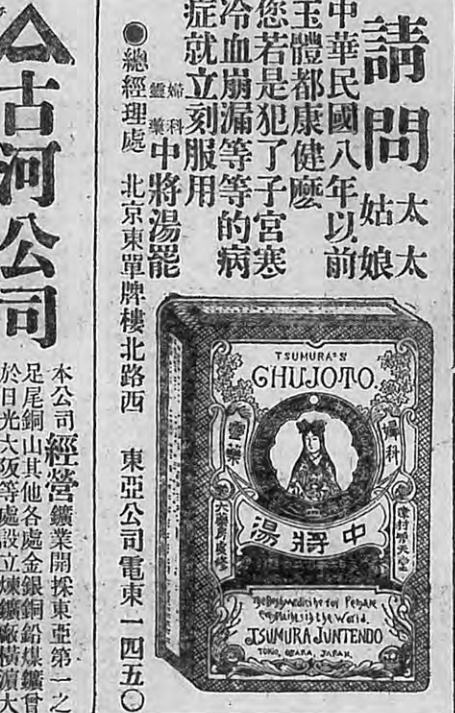 請問
太太
姑娘
中華民國八年以前
玉體都康健麽
您若是犯了子宮寒
冷血崩漏等等的病
症就立刻服用
婦科
靈藥
中將湯罷
●總經理處 北京東單牌樓北路西 東亞公司電東一四五〇
TSUMURA'S
CHUJOTO.
婦科
靈藥
中將湯
津村順天堂
The Best Medicine for Female
Complaints in the World.
TSUMURA JUNTENDO
TOKIO, OSAKA, JAPAN.
古河公司
本公司經營鑛業開採東亞第一之
足尾銅山其他各處金銀銅鉛煤鑛曾
於日光大阪等處設立煉鑛廠橫濱大